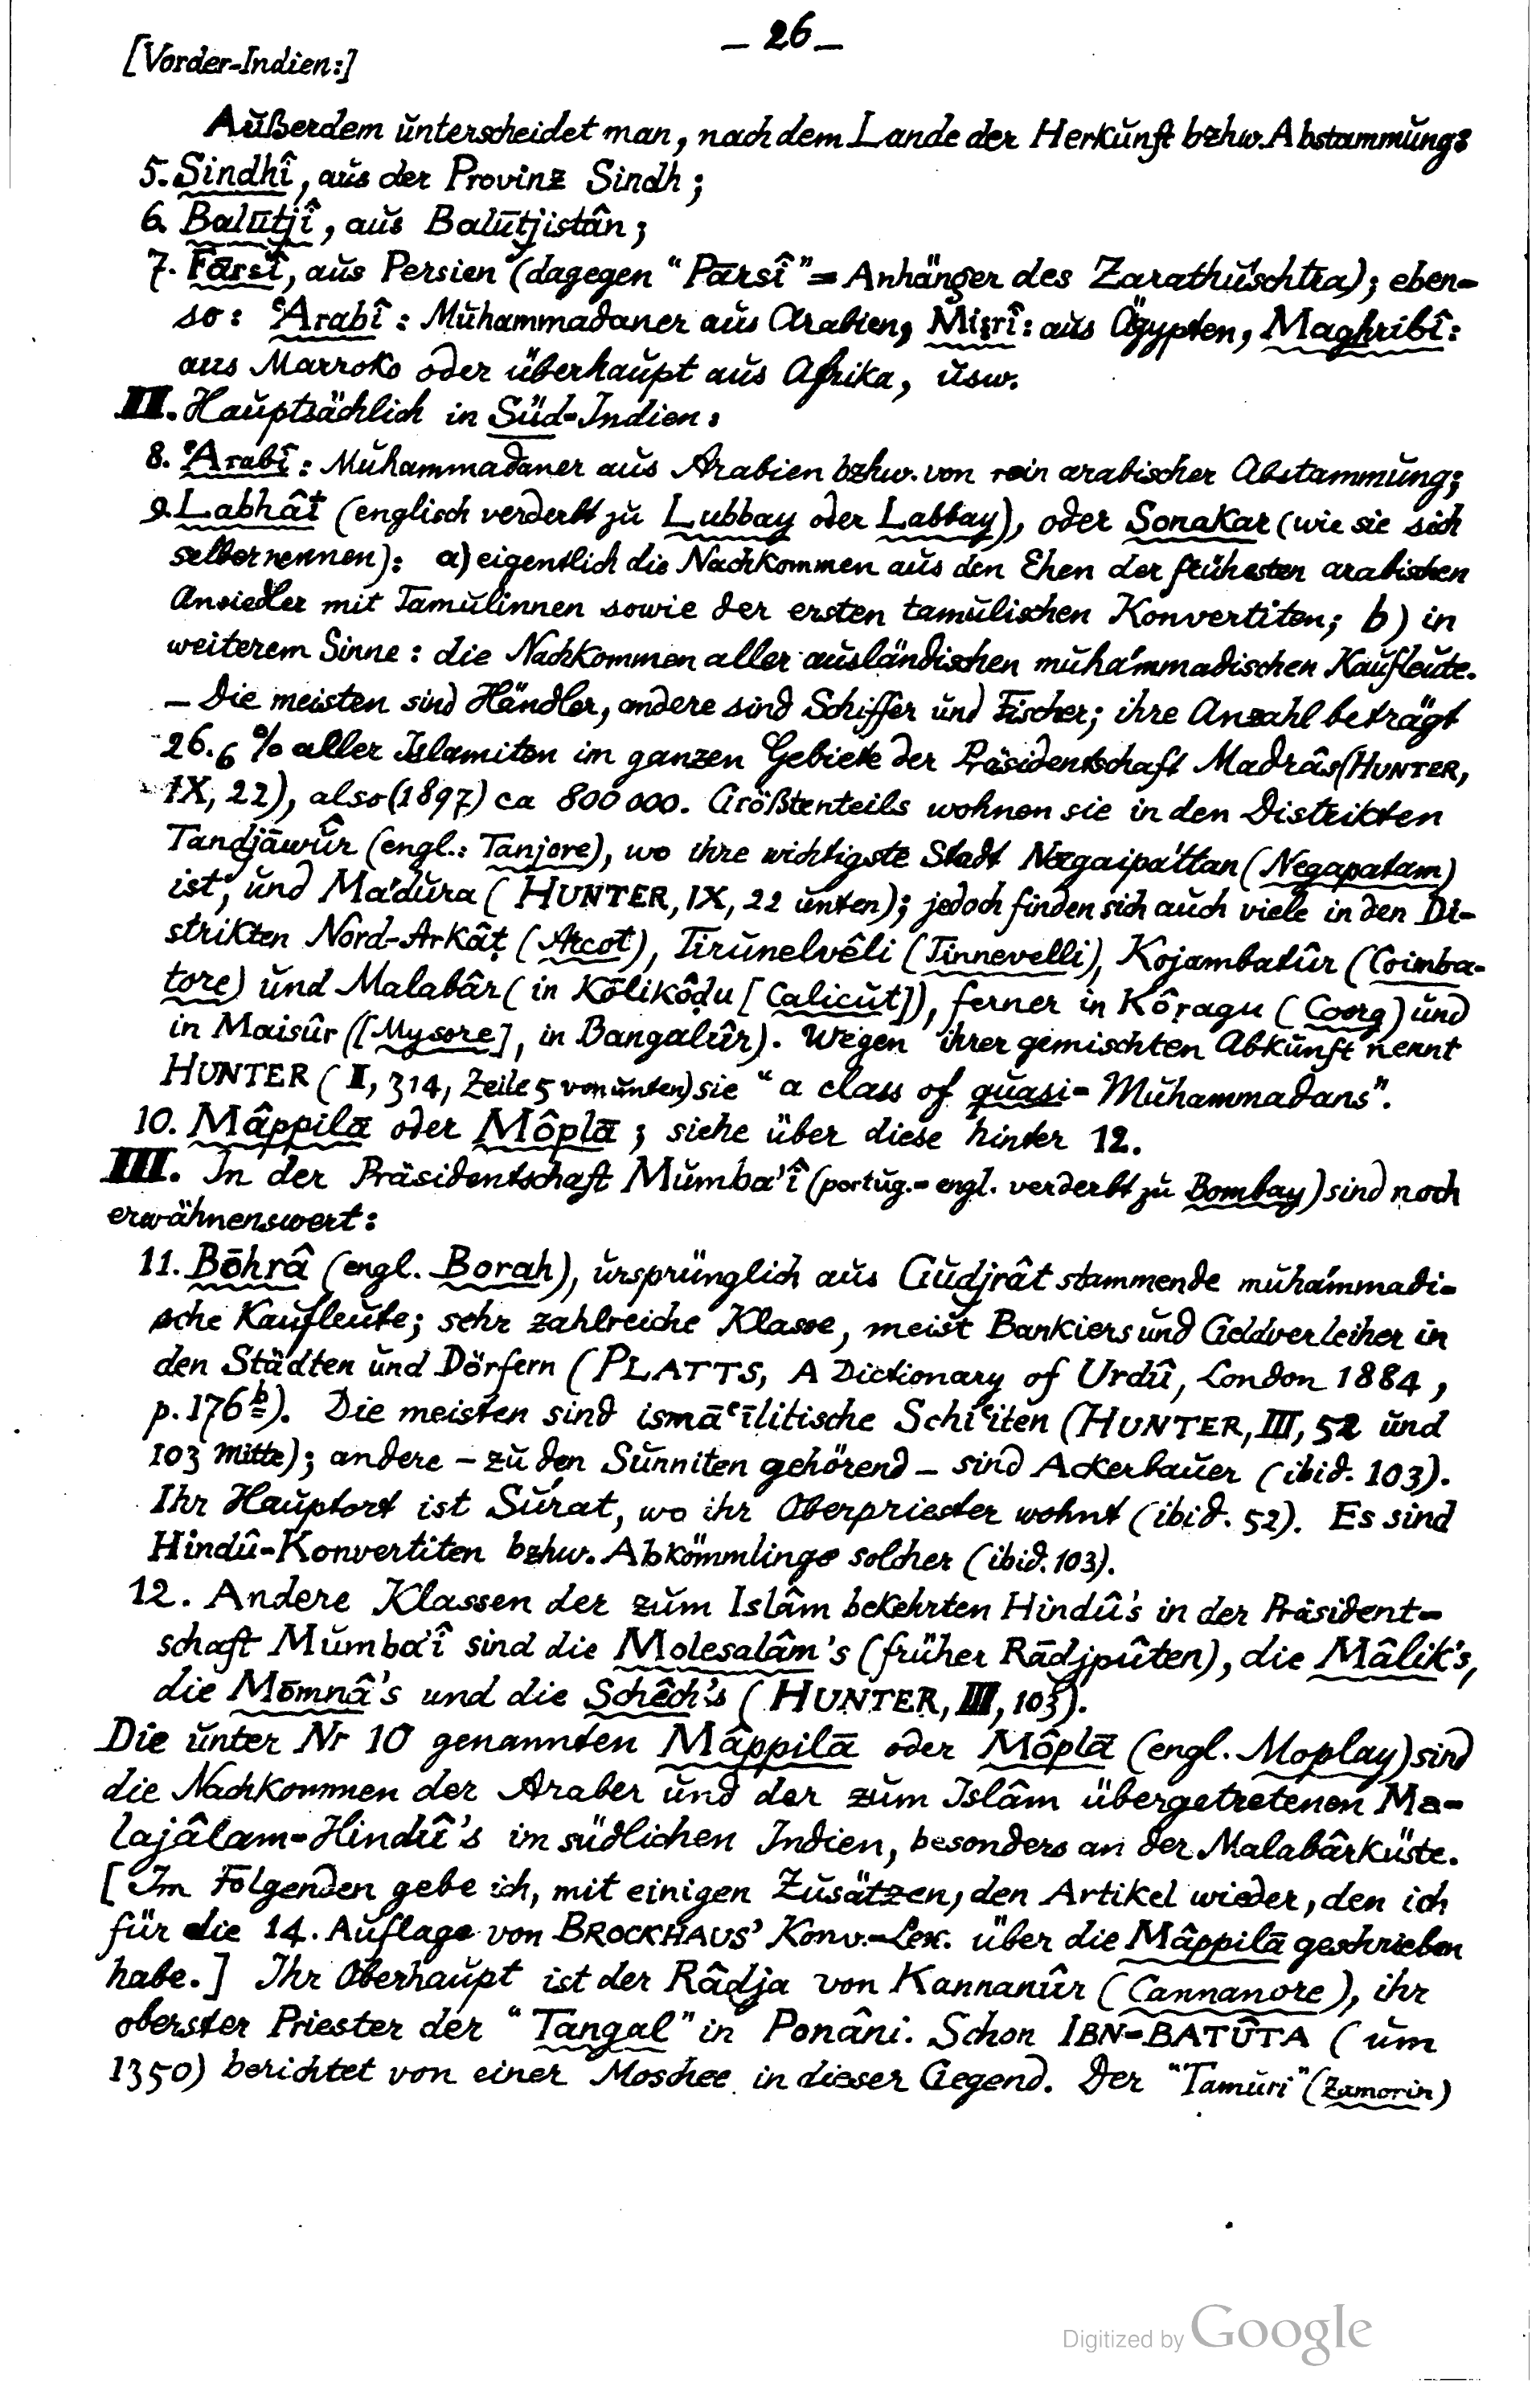 – 26 –
[Vorder-Indien:]
Außerdem unterscheidet man, nach dem Lande der Herkunft bzhw. Abstammung:
5. Sindhî, aus der Provinz Sindh;
6. Balūtjî, aus Balūtjistân;
7. Fārsî, aus Persien (dagegen "Pārsî" = Anhänger des Zarathuschtra); eben-
so: ʿArabî: Muhammadaner aus Arabien, Miṣrî: aus Ägypten, Maghribî:
aus Marroko oder überhaupt aus Afrika, usw.
II. Hauptsächlich in Süd-Indien:
8. ʿArabî: Muhammadaner aus Arabien bzhw. von rein arabischer Abstammung;
9. Labhât (englisch verderbt zu Lubbay oder Labbay), oder Sonakar (wie sie sich
selber nennen): a) eigentlich die Nachkommen aus den Ehen der frühesten arabischen
Ansiedler mit Tamulinnen sowie der ersten tamulischen Konvertiten; b) in
weiterem Sinne: die Nachkommen aller ausländischen muhámmadischen Kaufleute.
– Die meisten sind Händler, andere sind Schiffer und Fischer; ihre Anzahl beträgt
26.6 % aller Islamiten im ganzen Gebiete der Präsidentschaft Madrâs (HUNTER,
IX, 22), also (1897) ca 800 000. Größtenteils wohnen sie in den Distrikten
Tandjāwûr (engl.: Tanjore), wo ihre wichtigste Stadt Nægaipáttan (Negapatam)
ist, und Mádura (HUNTER, IX, 22 unten); jedoch finden sich auch viele in den Di-
strikten Nord-Arkâṭ (Arcot), Tirunelvêli (Tinnevelli), Kojambatûr (Coimba-
tore) und Malabâr (in Kōlikôḍu [Calicut]), ferner in Kôṛagu (Coorg) und
in Maisûr ([Mysore], in Bangalûr). Wegen ihrer gemischten Abkunft nennt
HUNTER (II, 314, Zeile 5 von unten) sie "a class of quasi-Muhammadans".
10. Mâppilā oder Môplā; siehe über diese hinter 12.
III. In der Präsidentschaft Mumba'î (portug.-engl. verderbt zu Bombay) sind noch
erwähnenswert:
11. Bōhrâ (engl. Borah), ursprünglich aus Gudjrât stammende muhámmadi-
sche Kaufleute; sehr zahlreiche Klasse, meist Bankiers und Geldverleiher in
den Städten und Dörfern (PLATTS, A Dictionary of Urdû, London 1884,
p. 176b). Die meisten sind ismāʿīlitische Schiʿiten (HUNTER, III, 52 und
103 Mitte); andere – zu den Sunniten gehörend – sind Ackerbauer (ibid. 103).
Ihr Hauptort ist Surat, wo ihr Oberpriester wohnt (ibid. 52). Es sind
Hindû-Konvertiten bzhw. Abkömmlinge solcher (ibid. 103).
12. Andere Klassen der zum Islâm bekehrten Hindû's in der Präsident-
schaft Mumba'î sind die Molesalâm's (früher Rādjpûten), die Mâlik's,
die Mōmnâ's und die Schêch's (HUNTER, III, 103).
Die unter Nr 10 genannten Mâppilā oder Môplā (engl. Moplay) sind
die Nachkommen der Araber und der zum Islâm übergetretenen Ma-
lajâlam-Hindû's im südlichen Indien, besonders an der Malabârküste.
[Im Folgenden gebe ich, mit einigen Zusätzen, den Artikel wieder, den ich
für die 14. Auflage von BROCKHAUS' Konv.-Lex. über die Mâppilā geschrieben
habe.] Ihr Oberhaupt ist der Râdja von Kannanûr (Cannanore), ihr
oberster Priester der "Tangal" in Ponâni. Schon IBN-BATÛTA (um
1350) berichtet von einer Moschee in dieser Gegend. Der "Tamuri" (Zamorin)
Digitized by Google